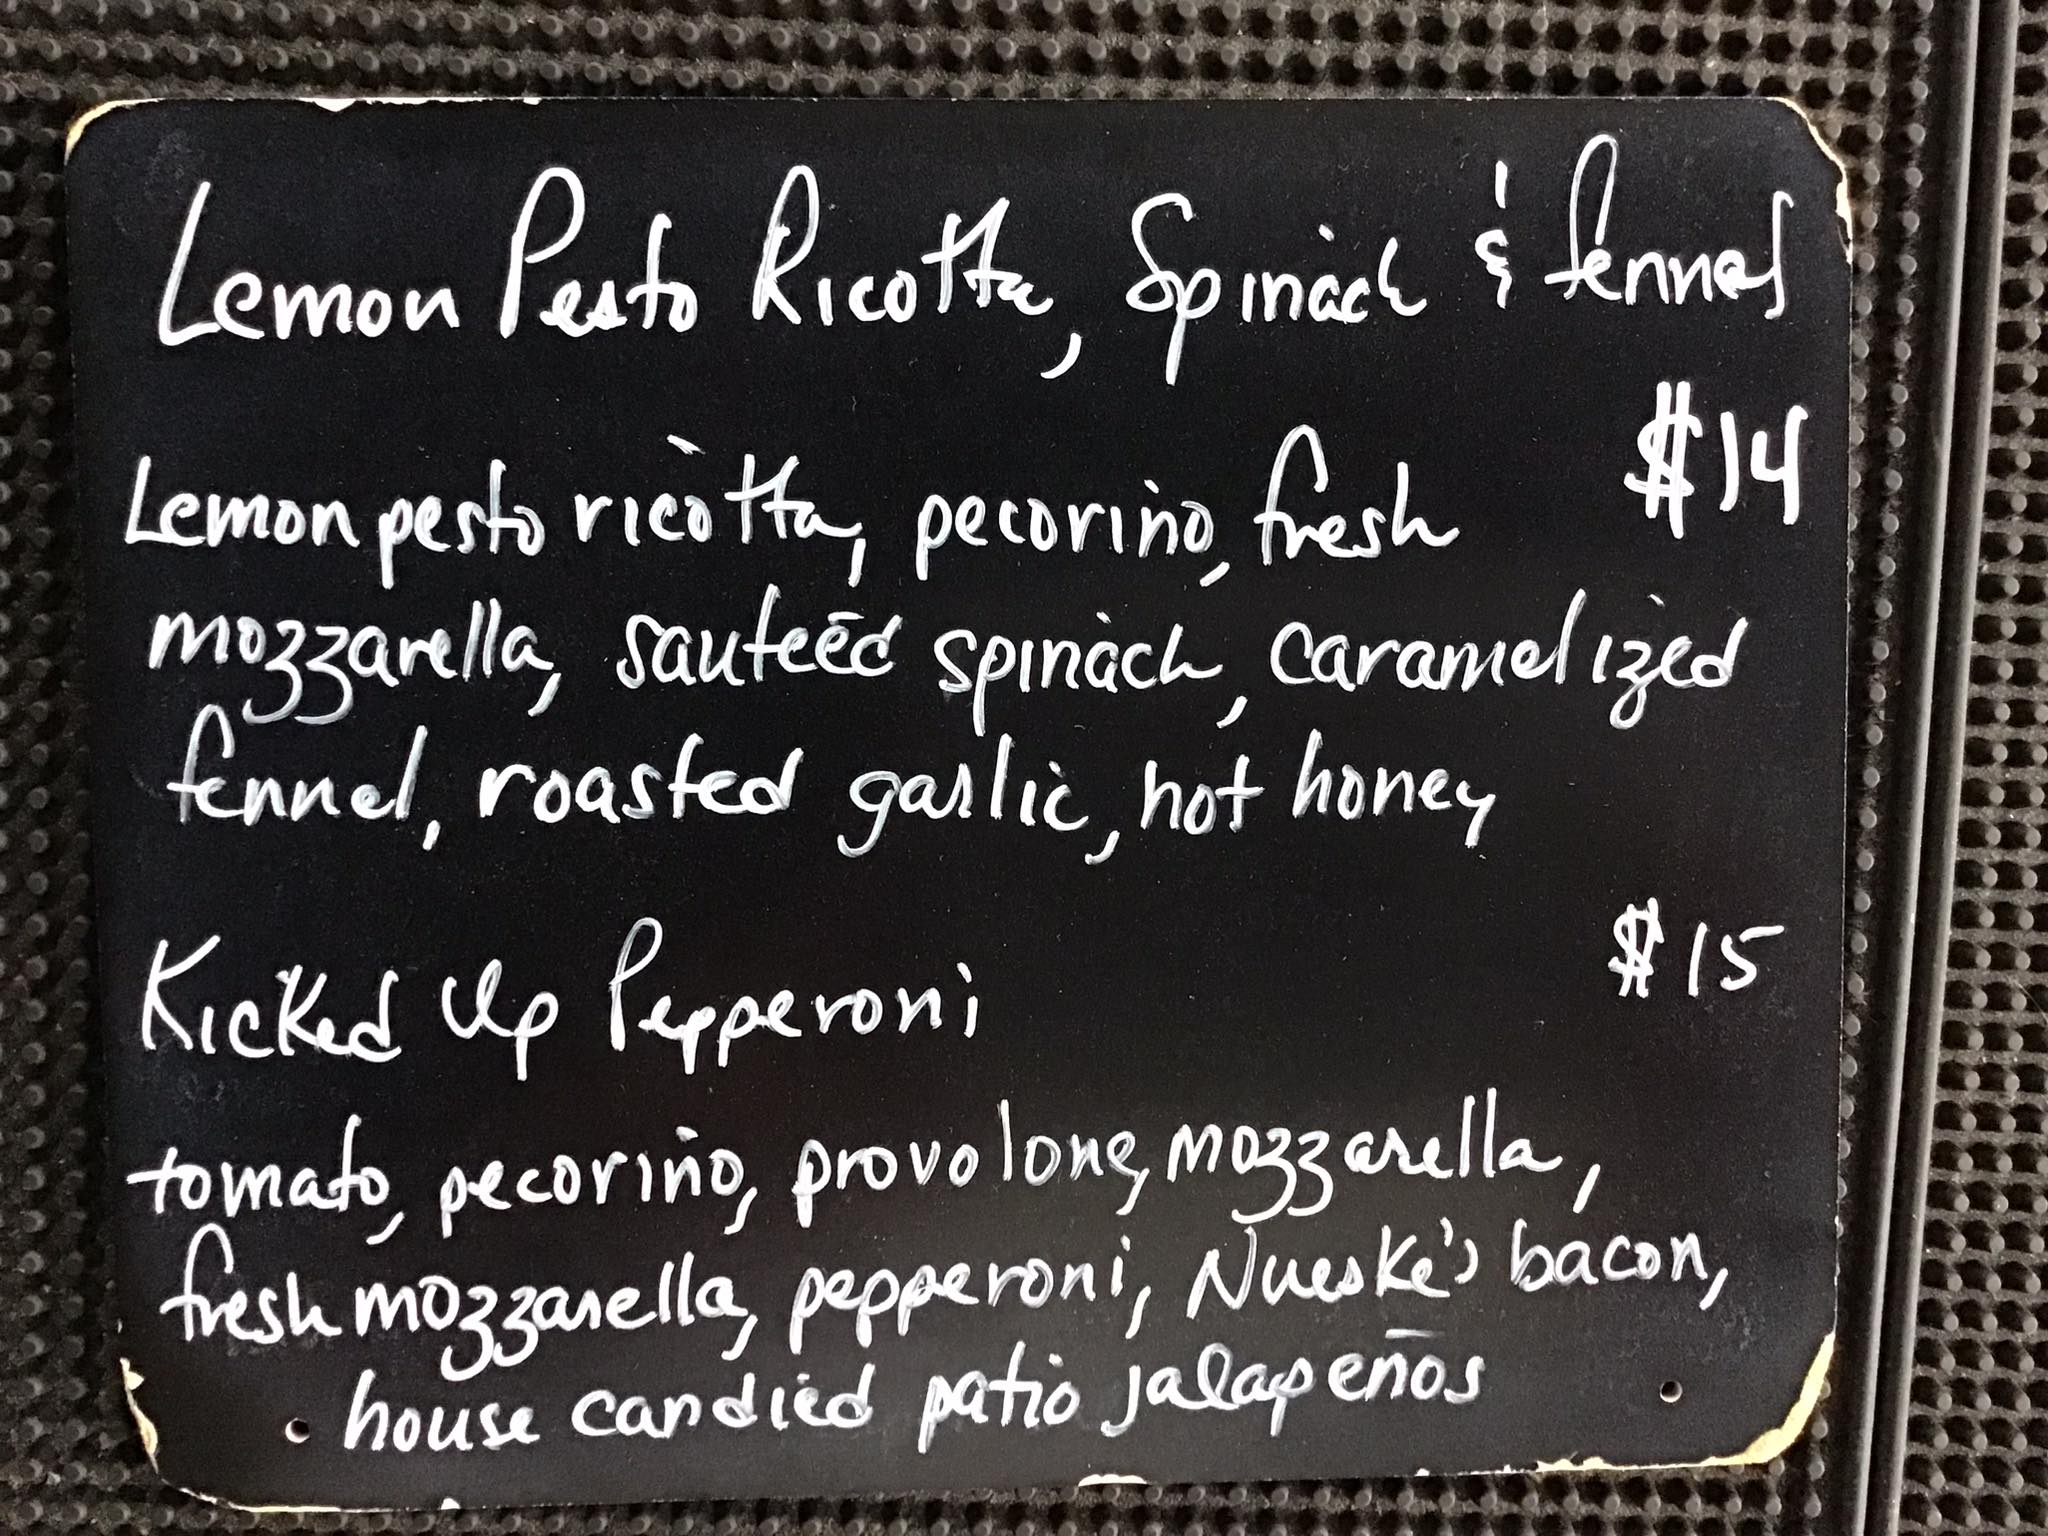 Lemon Pesto Ricotta, Spinach & fennel
$14
Lemon pesto ricotta, pecorino, fresh
mozzarella, sauteēd spinach, caramelized
fennel, roasted garlic, hot honey
Kicked Up Pepperoni $15
tomato, pecorino, provolone, mozzarella,
fresh mozzarella, pepperoni, Nueske's bacon,
house candied patio jalapeños